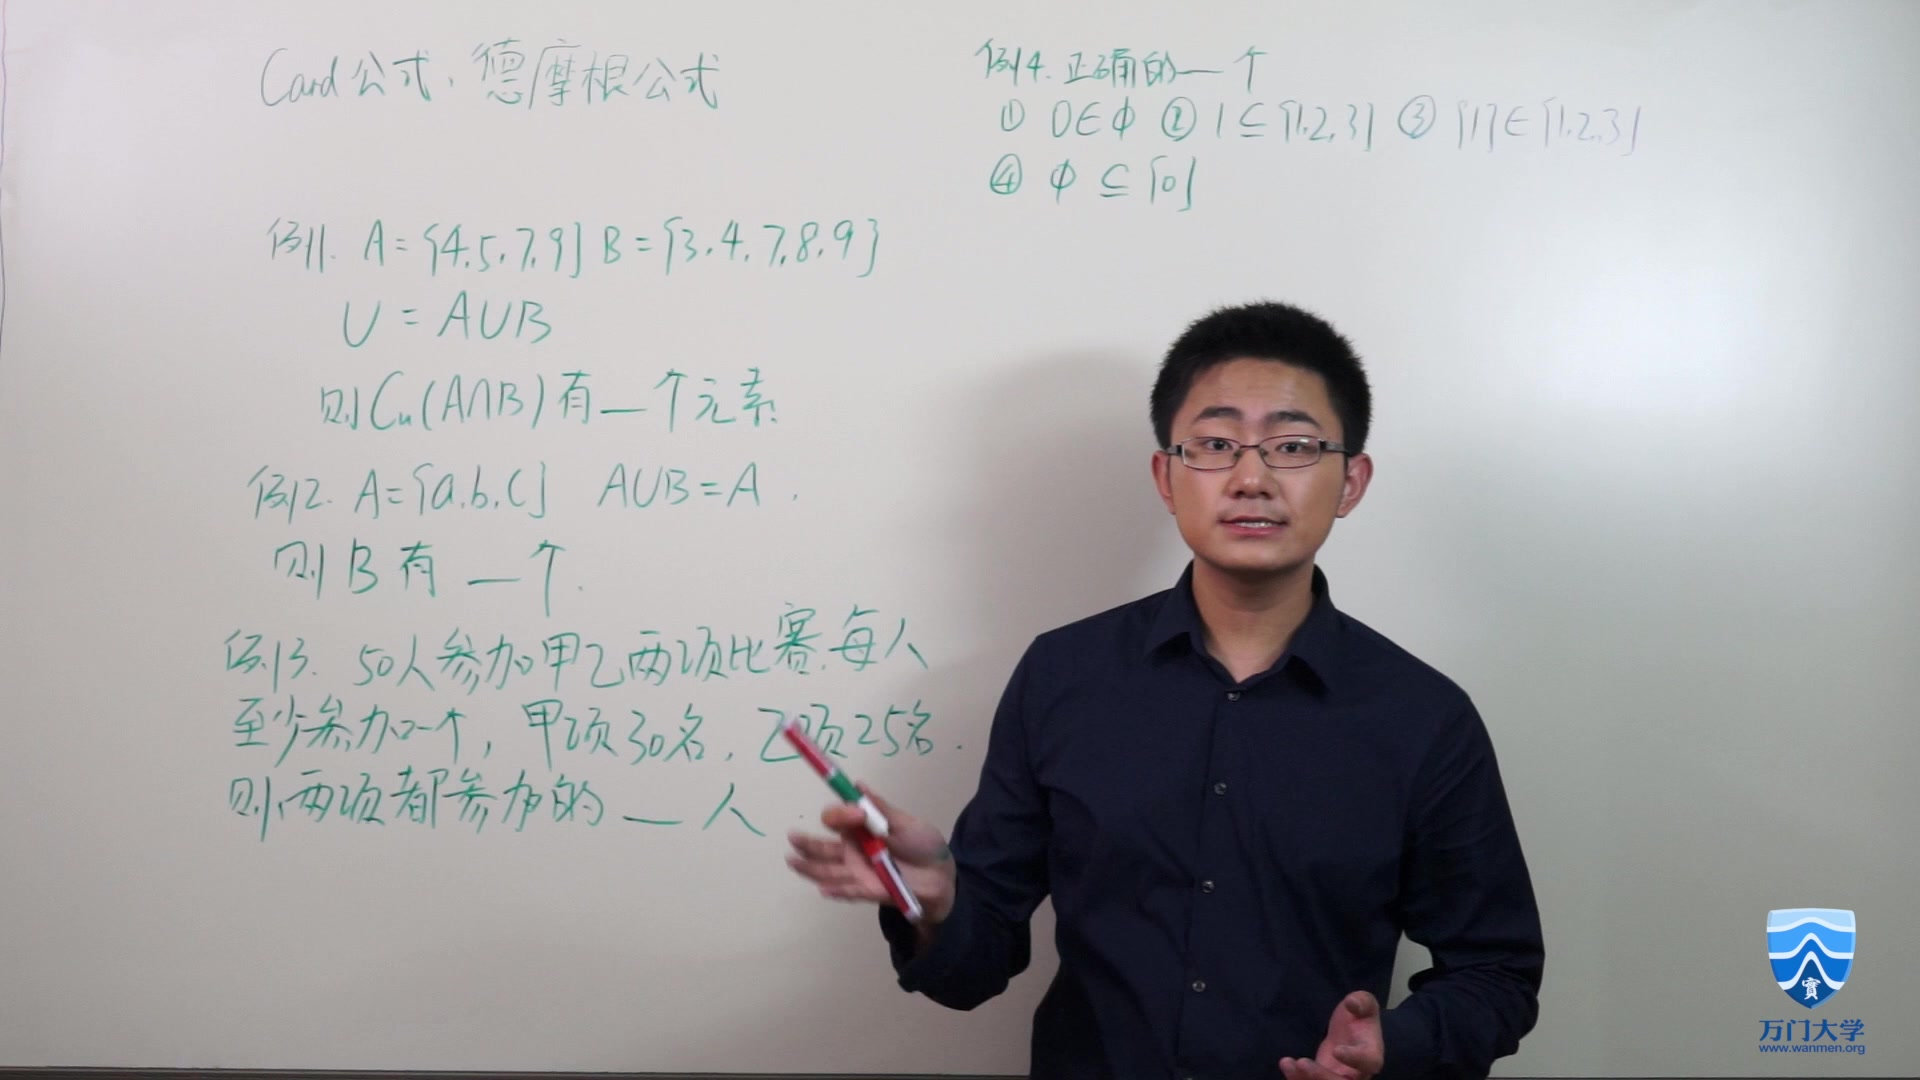 Card公式、德摩根公式
例1. A={4.5.7.9} B={3.4.7.8.9}
U=A∪B
则Cu(A∩B)有一个元素.
例2. A={a.b.c} A∪B=A.
则B有一个.
例3. 50人参加甲乙两项比赛.每人
至少参加一个,甲项30名,乙项25名.
则两项都参加的一人.
例4. 正确的一个
① 0∈Φ ② 1⊆{1.2.3} ③ {1}∈{1.2.3}
④ Φ⊆{0}
實
万门大学
www.wanmen.org